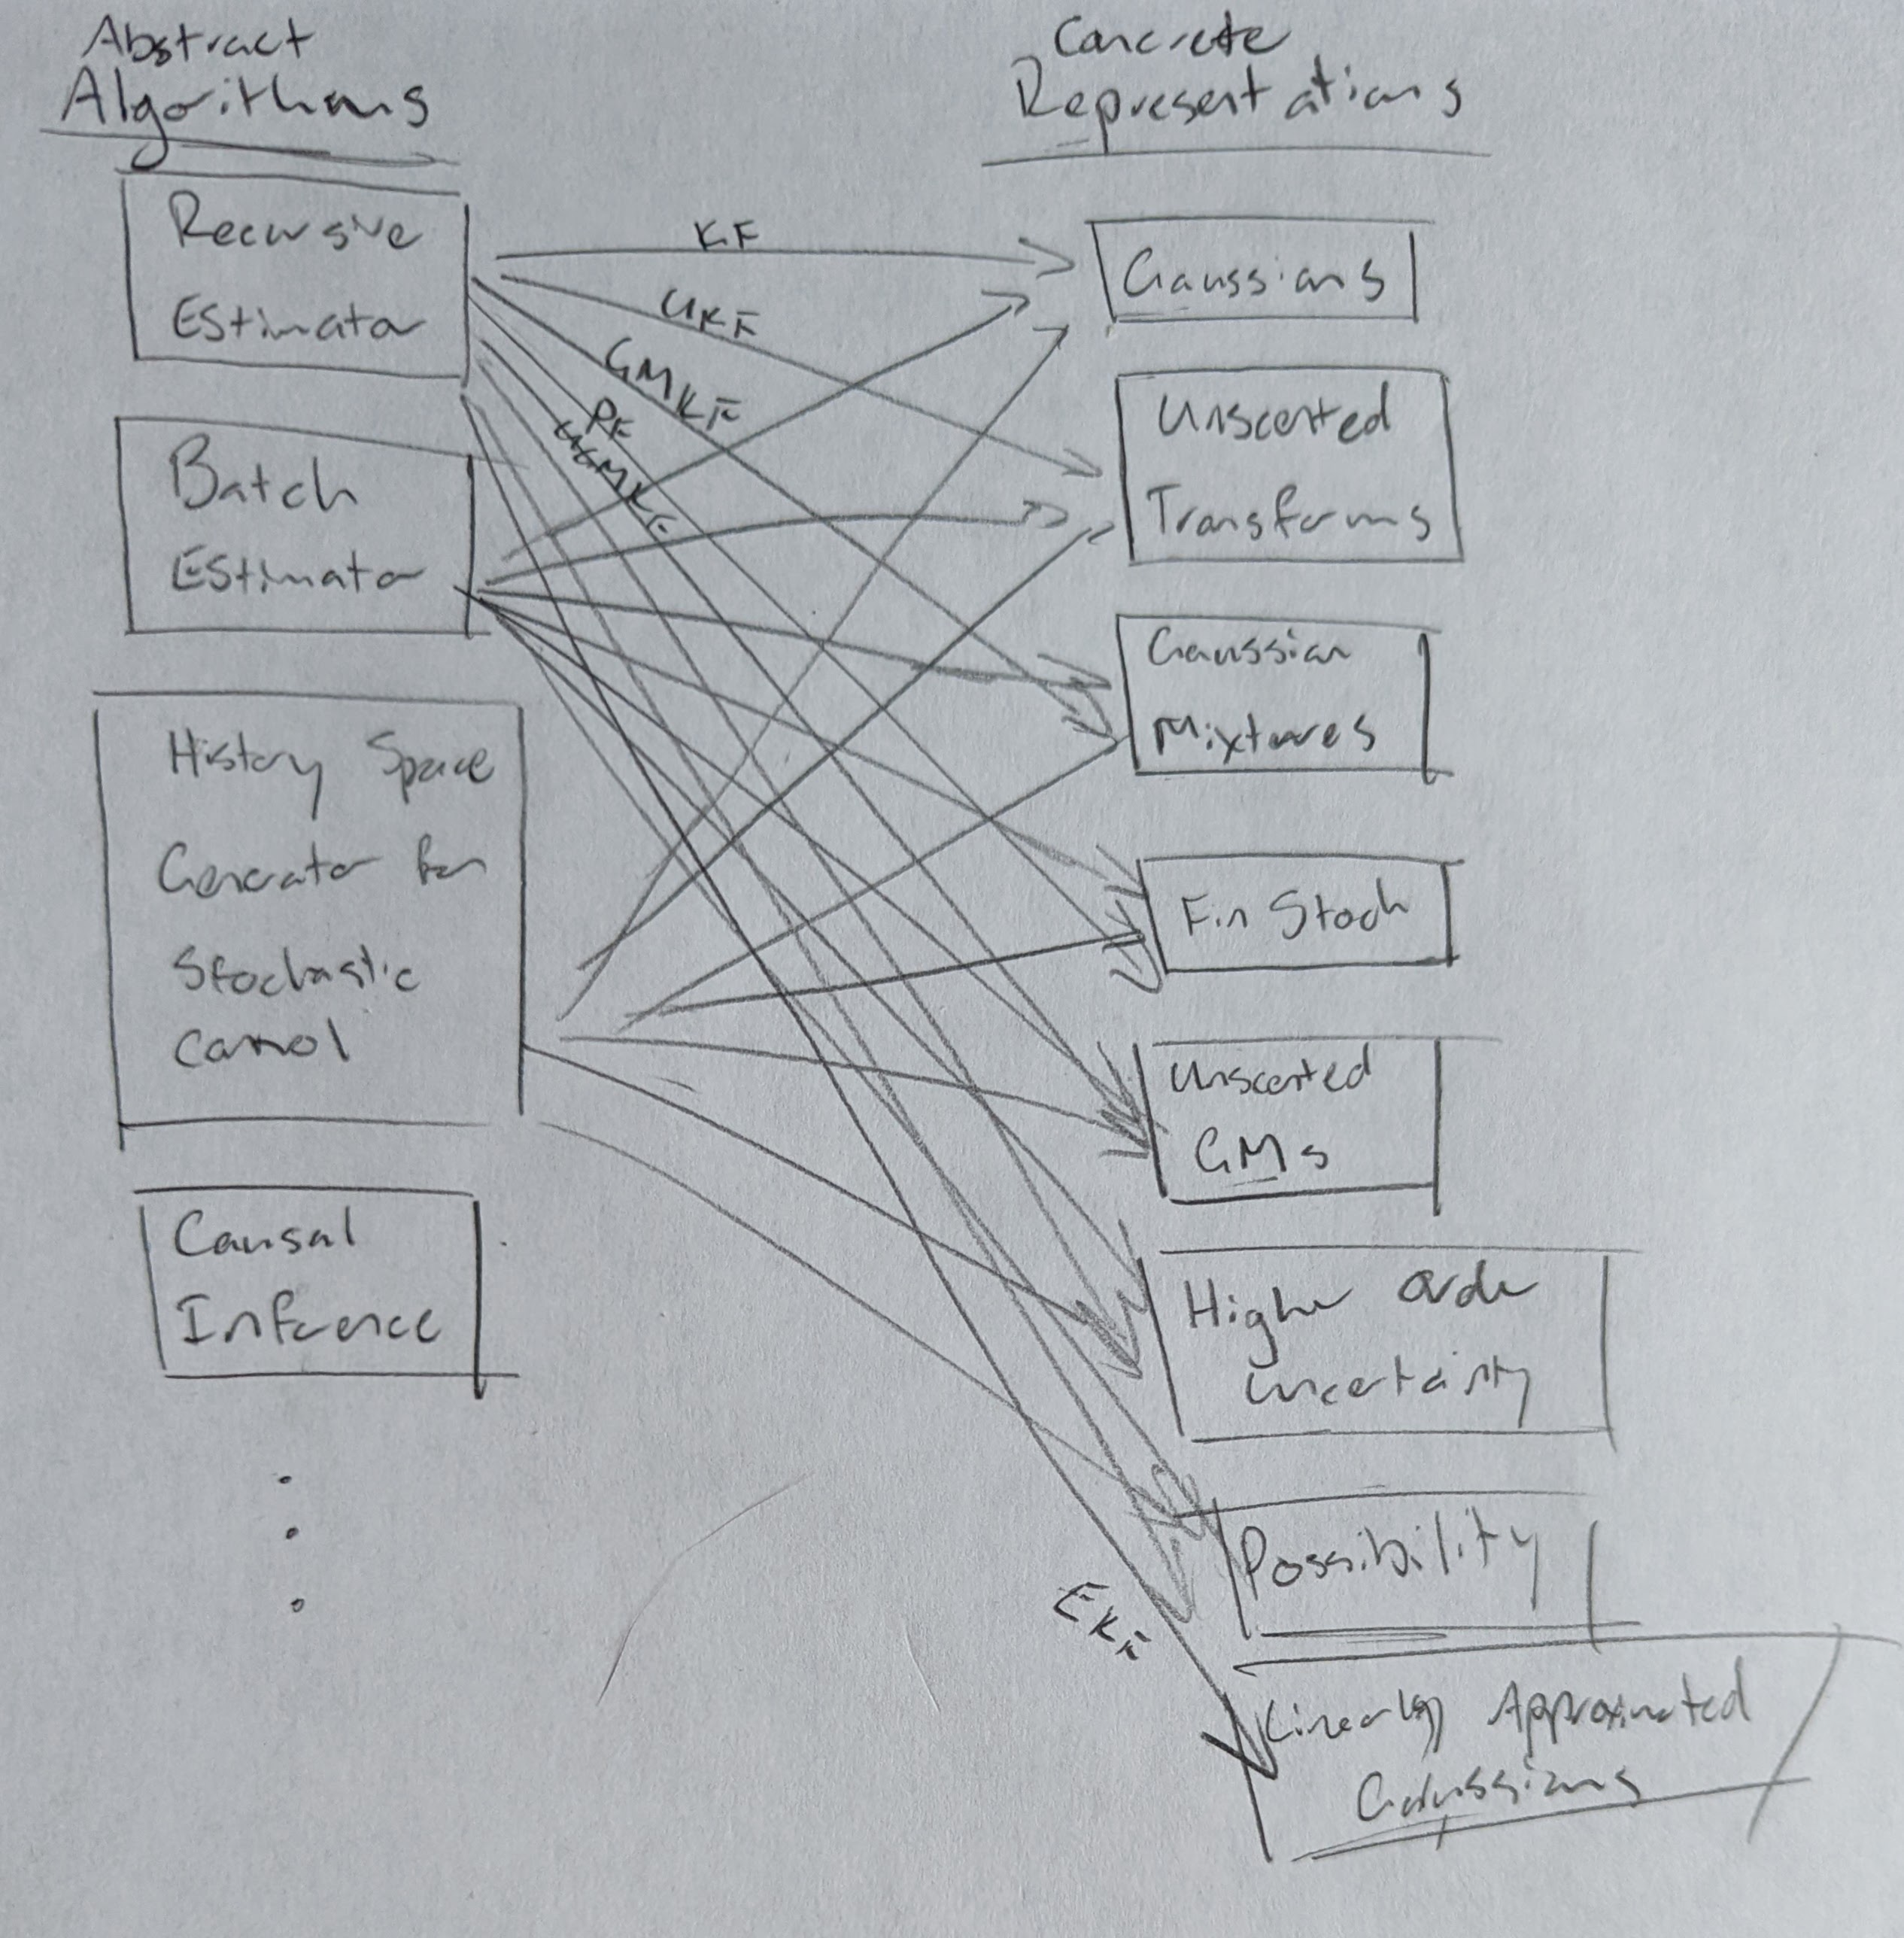 Abstract
Algorithms
Recursive
Estimator
Batch
Estimator
History Space
Generator for
Stochastic
Control
Causal
Inference
KF
UKF
GMKF
PF
UGMKF
EKF
Concrete
Representations
Gaussians
Unscented
Transforms
Gaussian
Mixtures
Fin Stoch
Unscented
GMs
Higher Order
Uncertainty
Possibility
Linearly Approximated
Gaussians